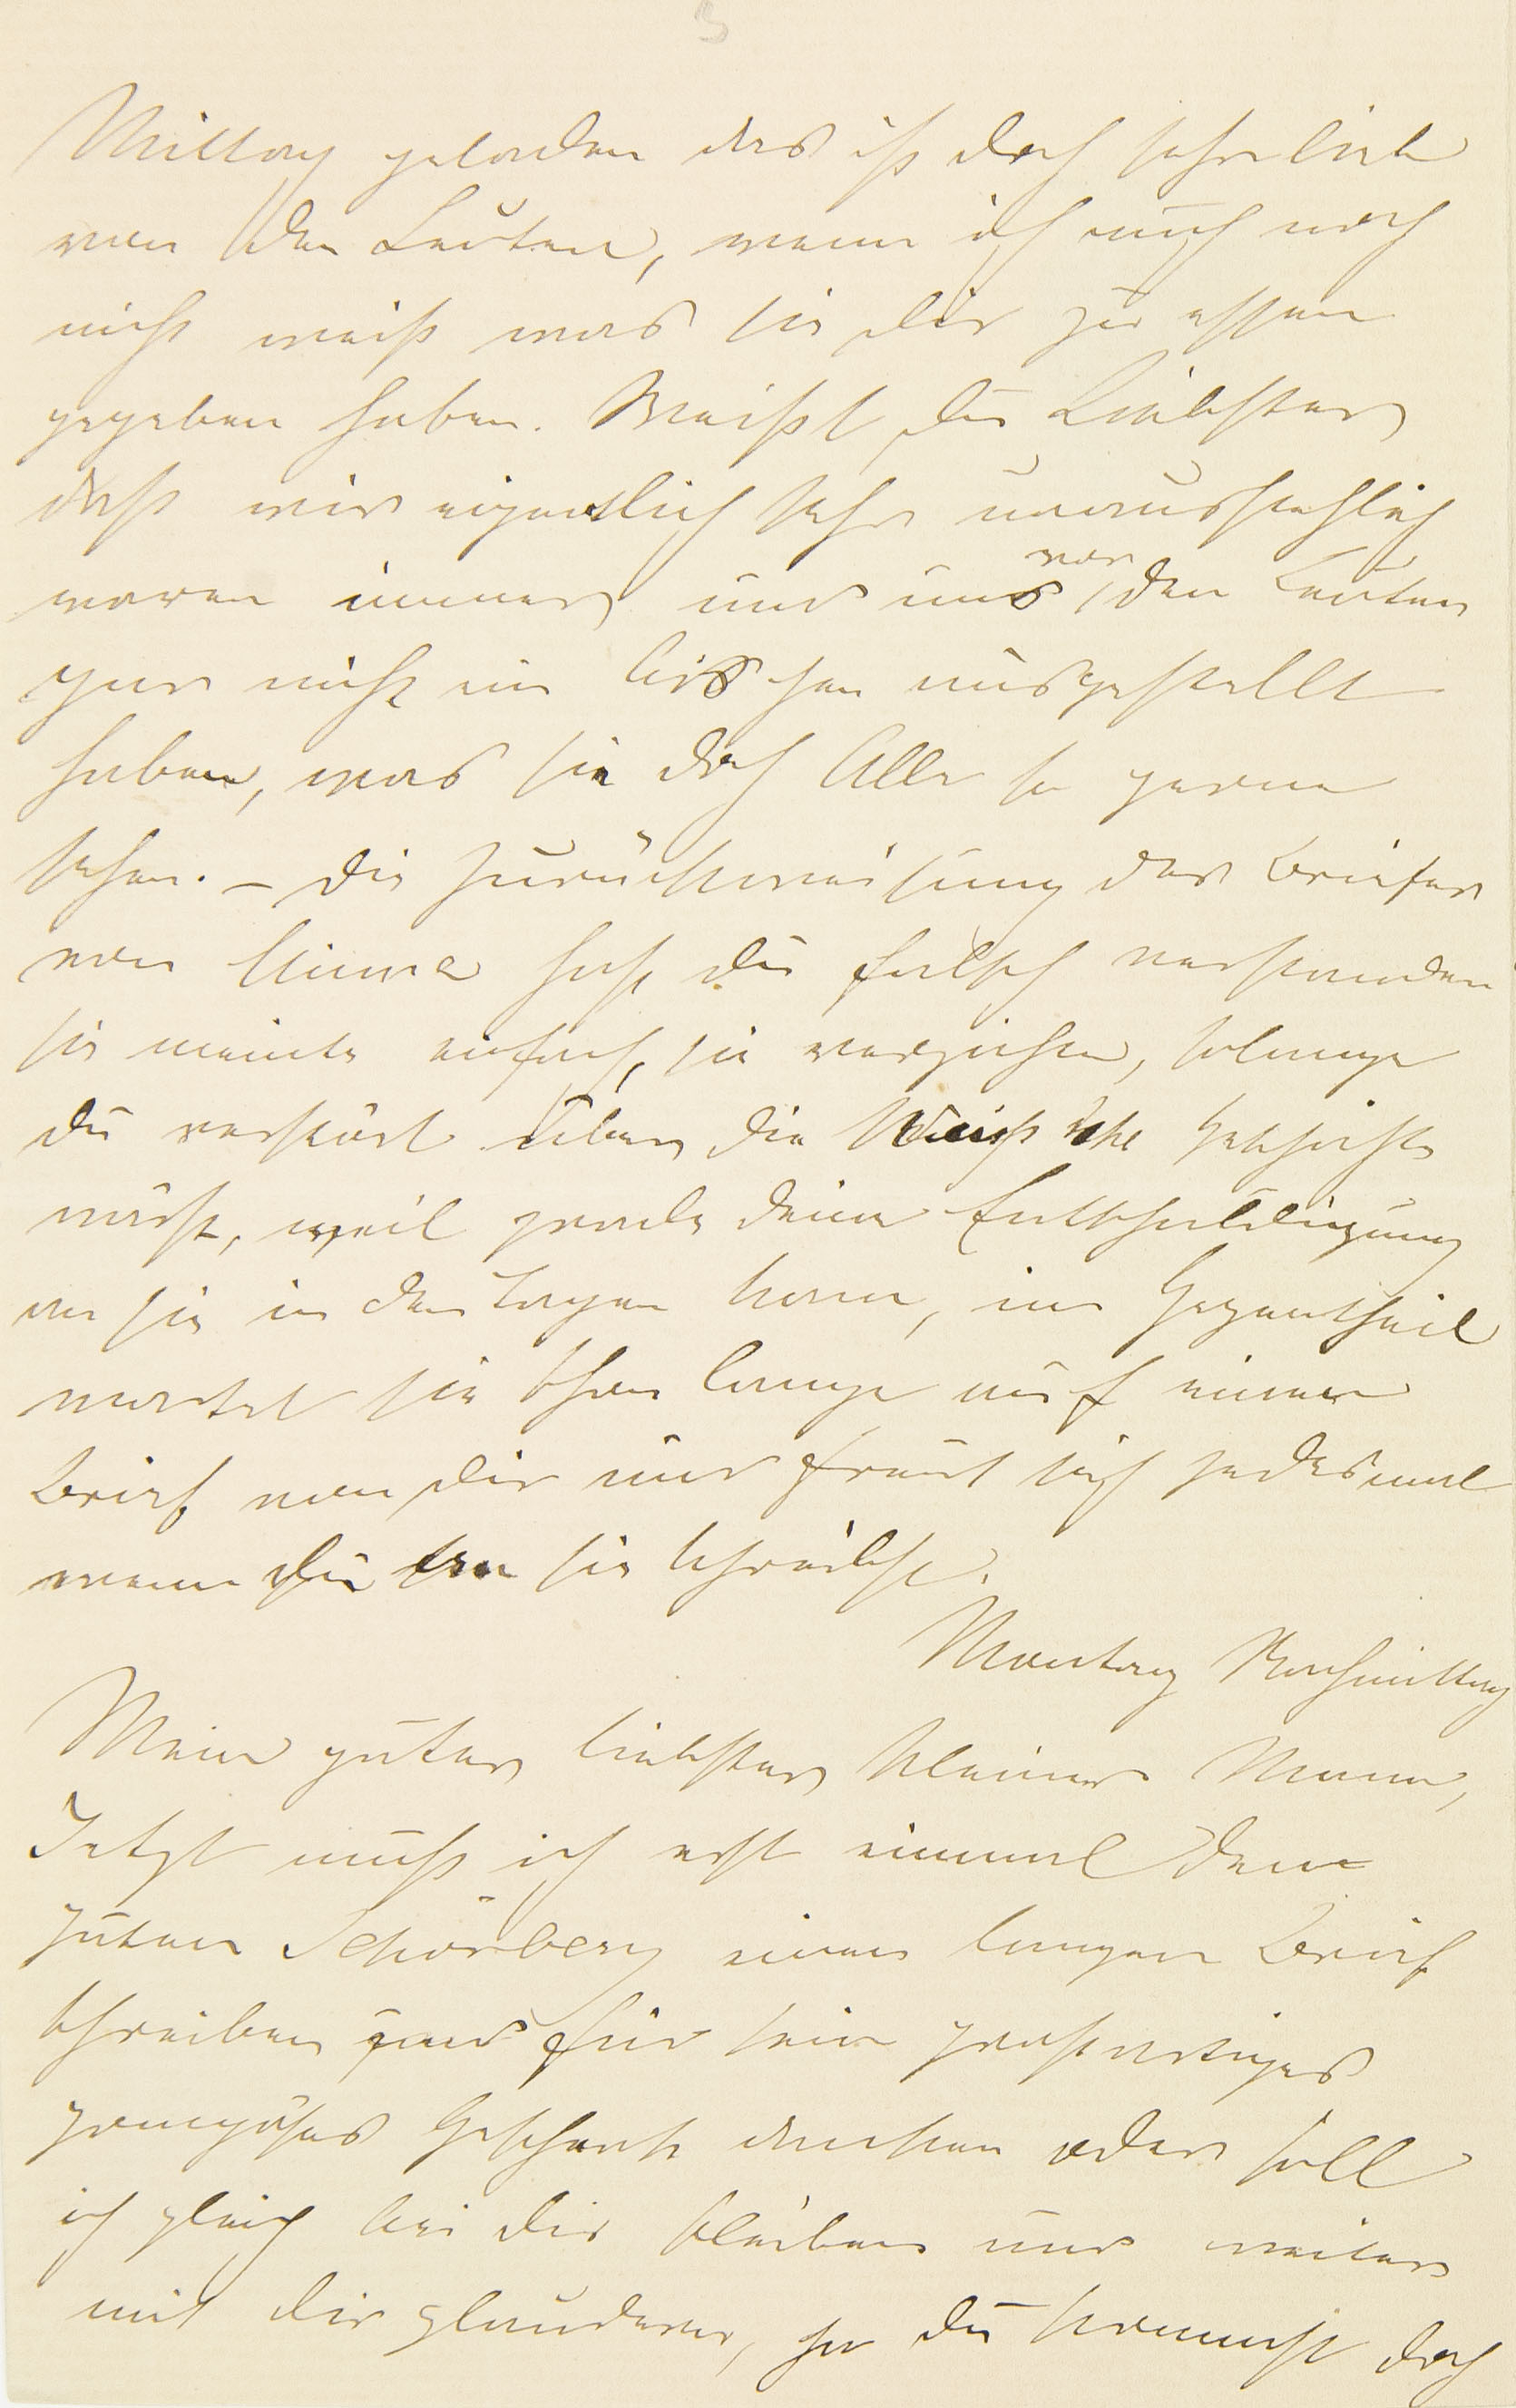 3
Mittag geladen das ist doch sehr lieb
von den Leuten, wenn ich auch noch
nicht weiß was sie dir zu essen
gegeben haben. Weißt du Liebster
daß wir eigentlich sehr unausstehlich
waren immer und uns vor den Leuten
gar nicht ein bisschen ausgestellt
haben, was sie doch Alle so gerne
sehen. – Die Zurückweisung der Briefe
von Minna hast du falsch verstanden
sie meinte einfach, sie verzichte, solange
du verstört über die Geschichte
wärst, weil gerade deine Entschuldigung
an sie in den Tagen kam, im Gegentheil
wartet sie schon lange auf einen
Brief von dir und freut sich jedesmal
wenn du an sie schreibst.
Montag Nachmittag
Mein guter liebster kleiner Mann,
Jetzt muß ich erst einmal dem
guten Schönberg einen langen Brief
schreiben und für sein großartiges
pompöses Geschenk danken oder soll
ich gleich bei dir bleiben und weiter
mit dir plaudern, ja du kommst doch